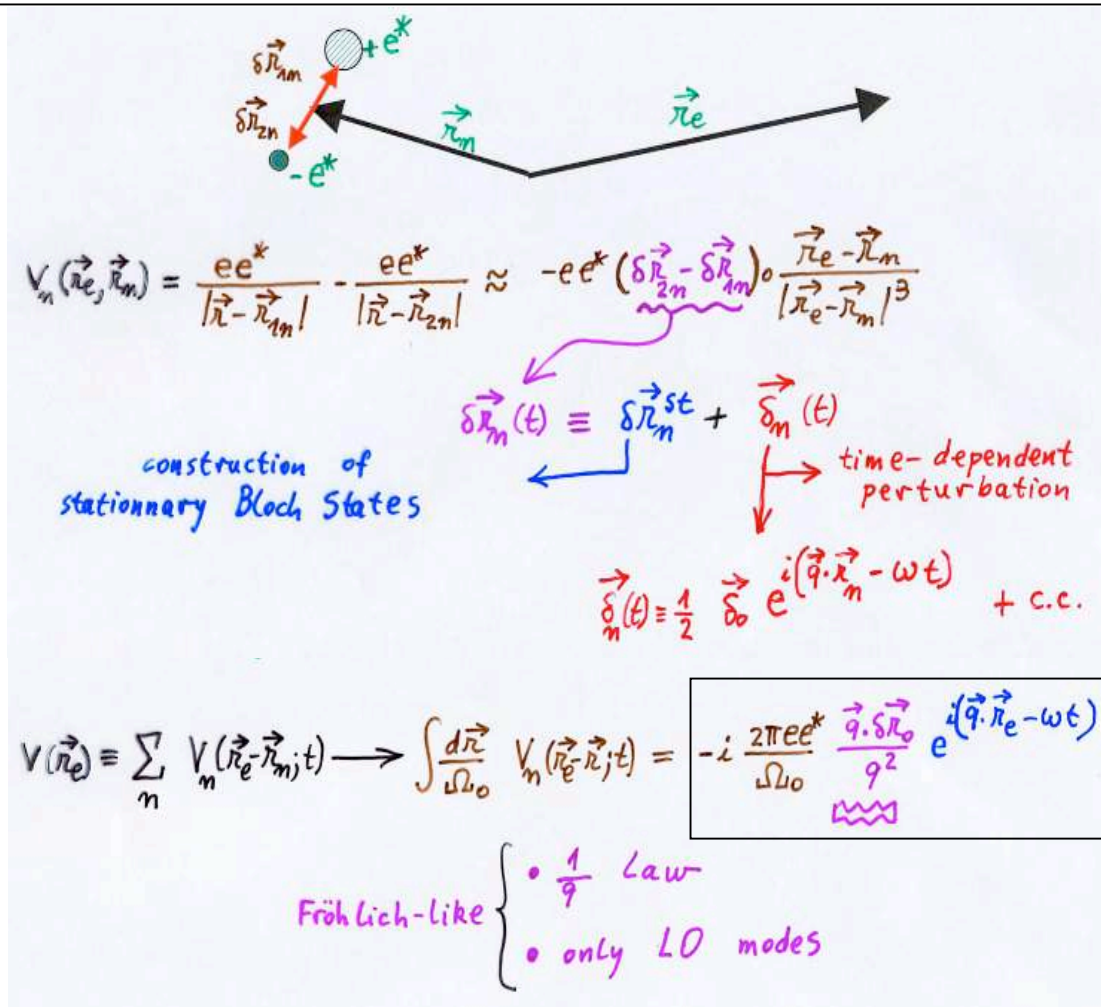 +e*
δr⃗₁ₙ
δr⃗₂ₙ
r⃗ₙ
r⃗ₑ
-e*
Vₙ(r⃗ₑ, r⃗ₙ) = ee*/|r⃗-r⃗₁ₙ| - ee*/|r⃗-r⃗₂ₙ| ≈ -ee*(δr⃗₂ₙ-δr⃗₁ₙ)∘(r⃗ₑ-r⃗ₙ)/|r⃗ₑ-r⃗ₙ|³
δr⃗ₙ(t) ≡ δr⃗ₙˢᵗ + δ⃗ₙ(t)
construction of
stationnary Bloch States
time-dependent
perturbation
δ⃗ₙ(t) ≡ 1/2 δ⃗₀ e^{i(q⃗·r⃗ₙ-ωt)} + c.c.
V(r⃗ₑ) ≡ Σₙ Vₙ(r⃗ₑ-r⃗ₙ;t) → ∫dr⃗/Ω₀ Vₙ(r⃗ₑ-r⃗;t) = -i 2πee*/Ω₀ q⃗·δr⃗₀/q² e^{i(q⃗·r⃗ₑ-ωt)}
• 1/q Law
Fröhlich-like
• only LO modes